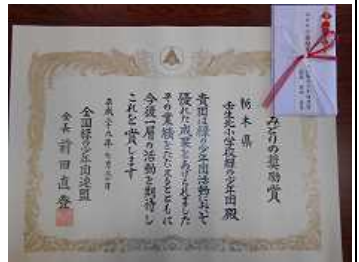 みどりの奨励賞
栃木県
壬生北小学校緑の少年団殿
貴団は緑の少年団活動において
優れた成果をあげられました
その業績をたたえるとともに
今後一層の活動を期待し
これを賞します
平成二十九年七月三十日
全国緑の少年団連盟
会長 前田直登